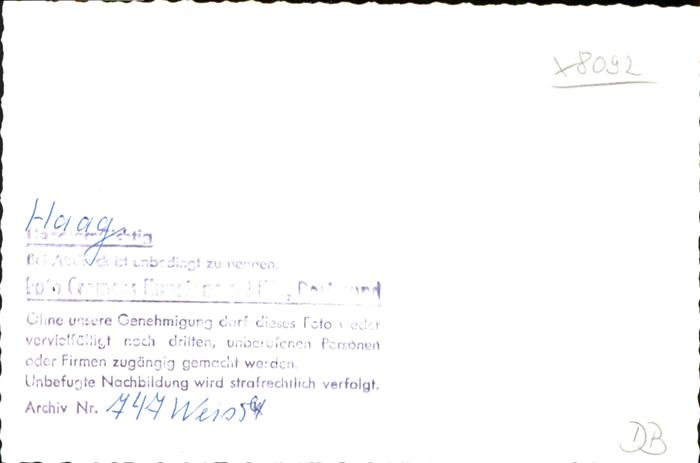 x8092
Haag
Bei Abdruck ist unbedingt zu nennen.
Foto Cramers Dortmund
Ohne unsere Genehmigung darf dieses Foto weder
vervielfältigt noch dritten, unberufenen Personen
oder Firmen zugängig gemacht werden.
Unbefugte Nachbildung wird strafrechtlich verfolgt.
Archiv Nr. 747 Weiss
DB